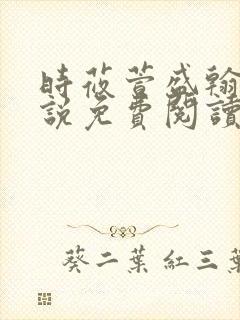 時莜萱盛翰
說免費閱讀
葵二葉 紅三葉